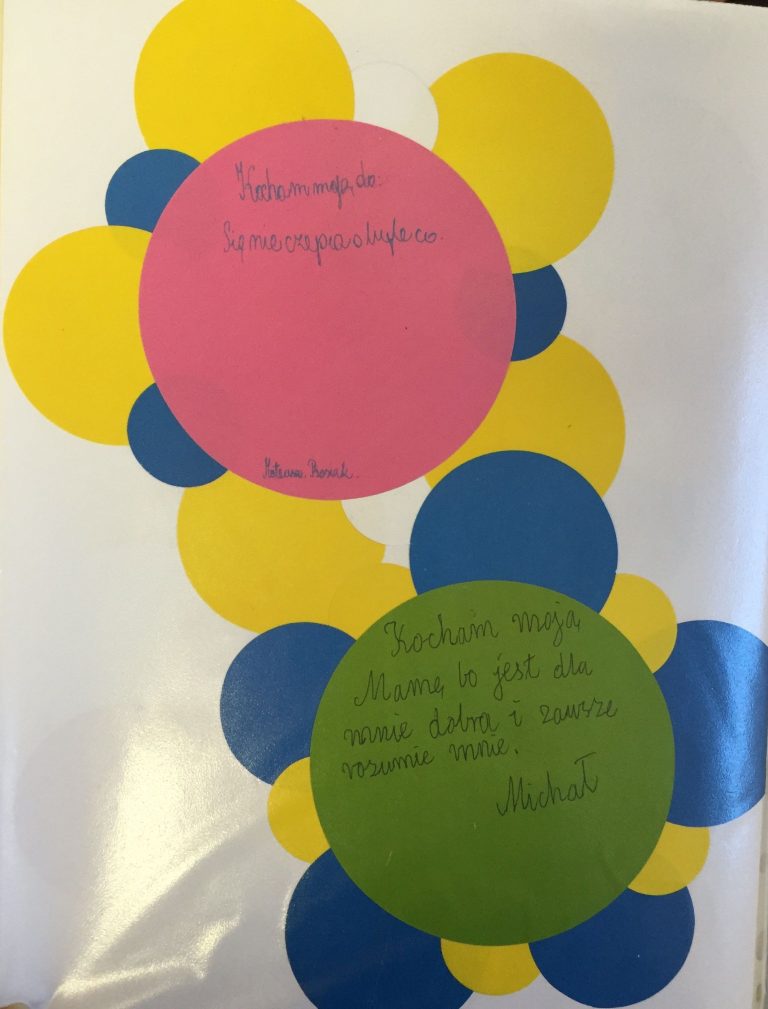 Kocham moją, bo:
Się nie czepia o byle co.
Mateusz. Bosiak.
Kocham moją
Mamę, bo jest dla
mnie dobra i zawsze
rozumie mnie.
Michał